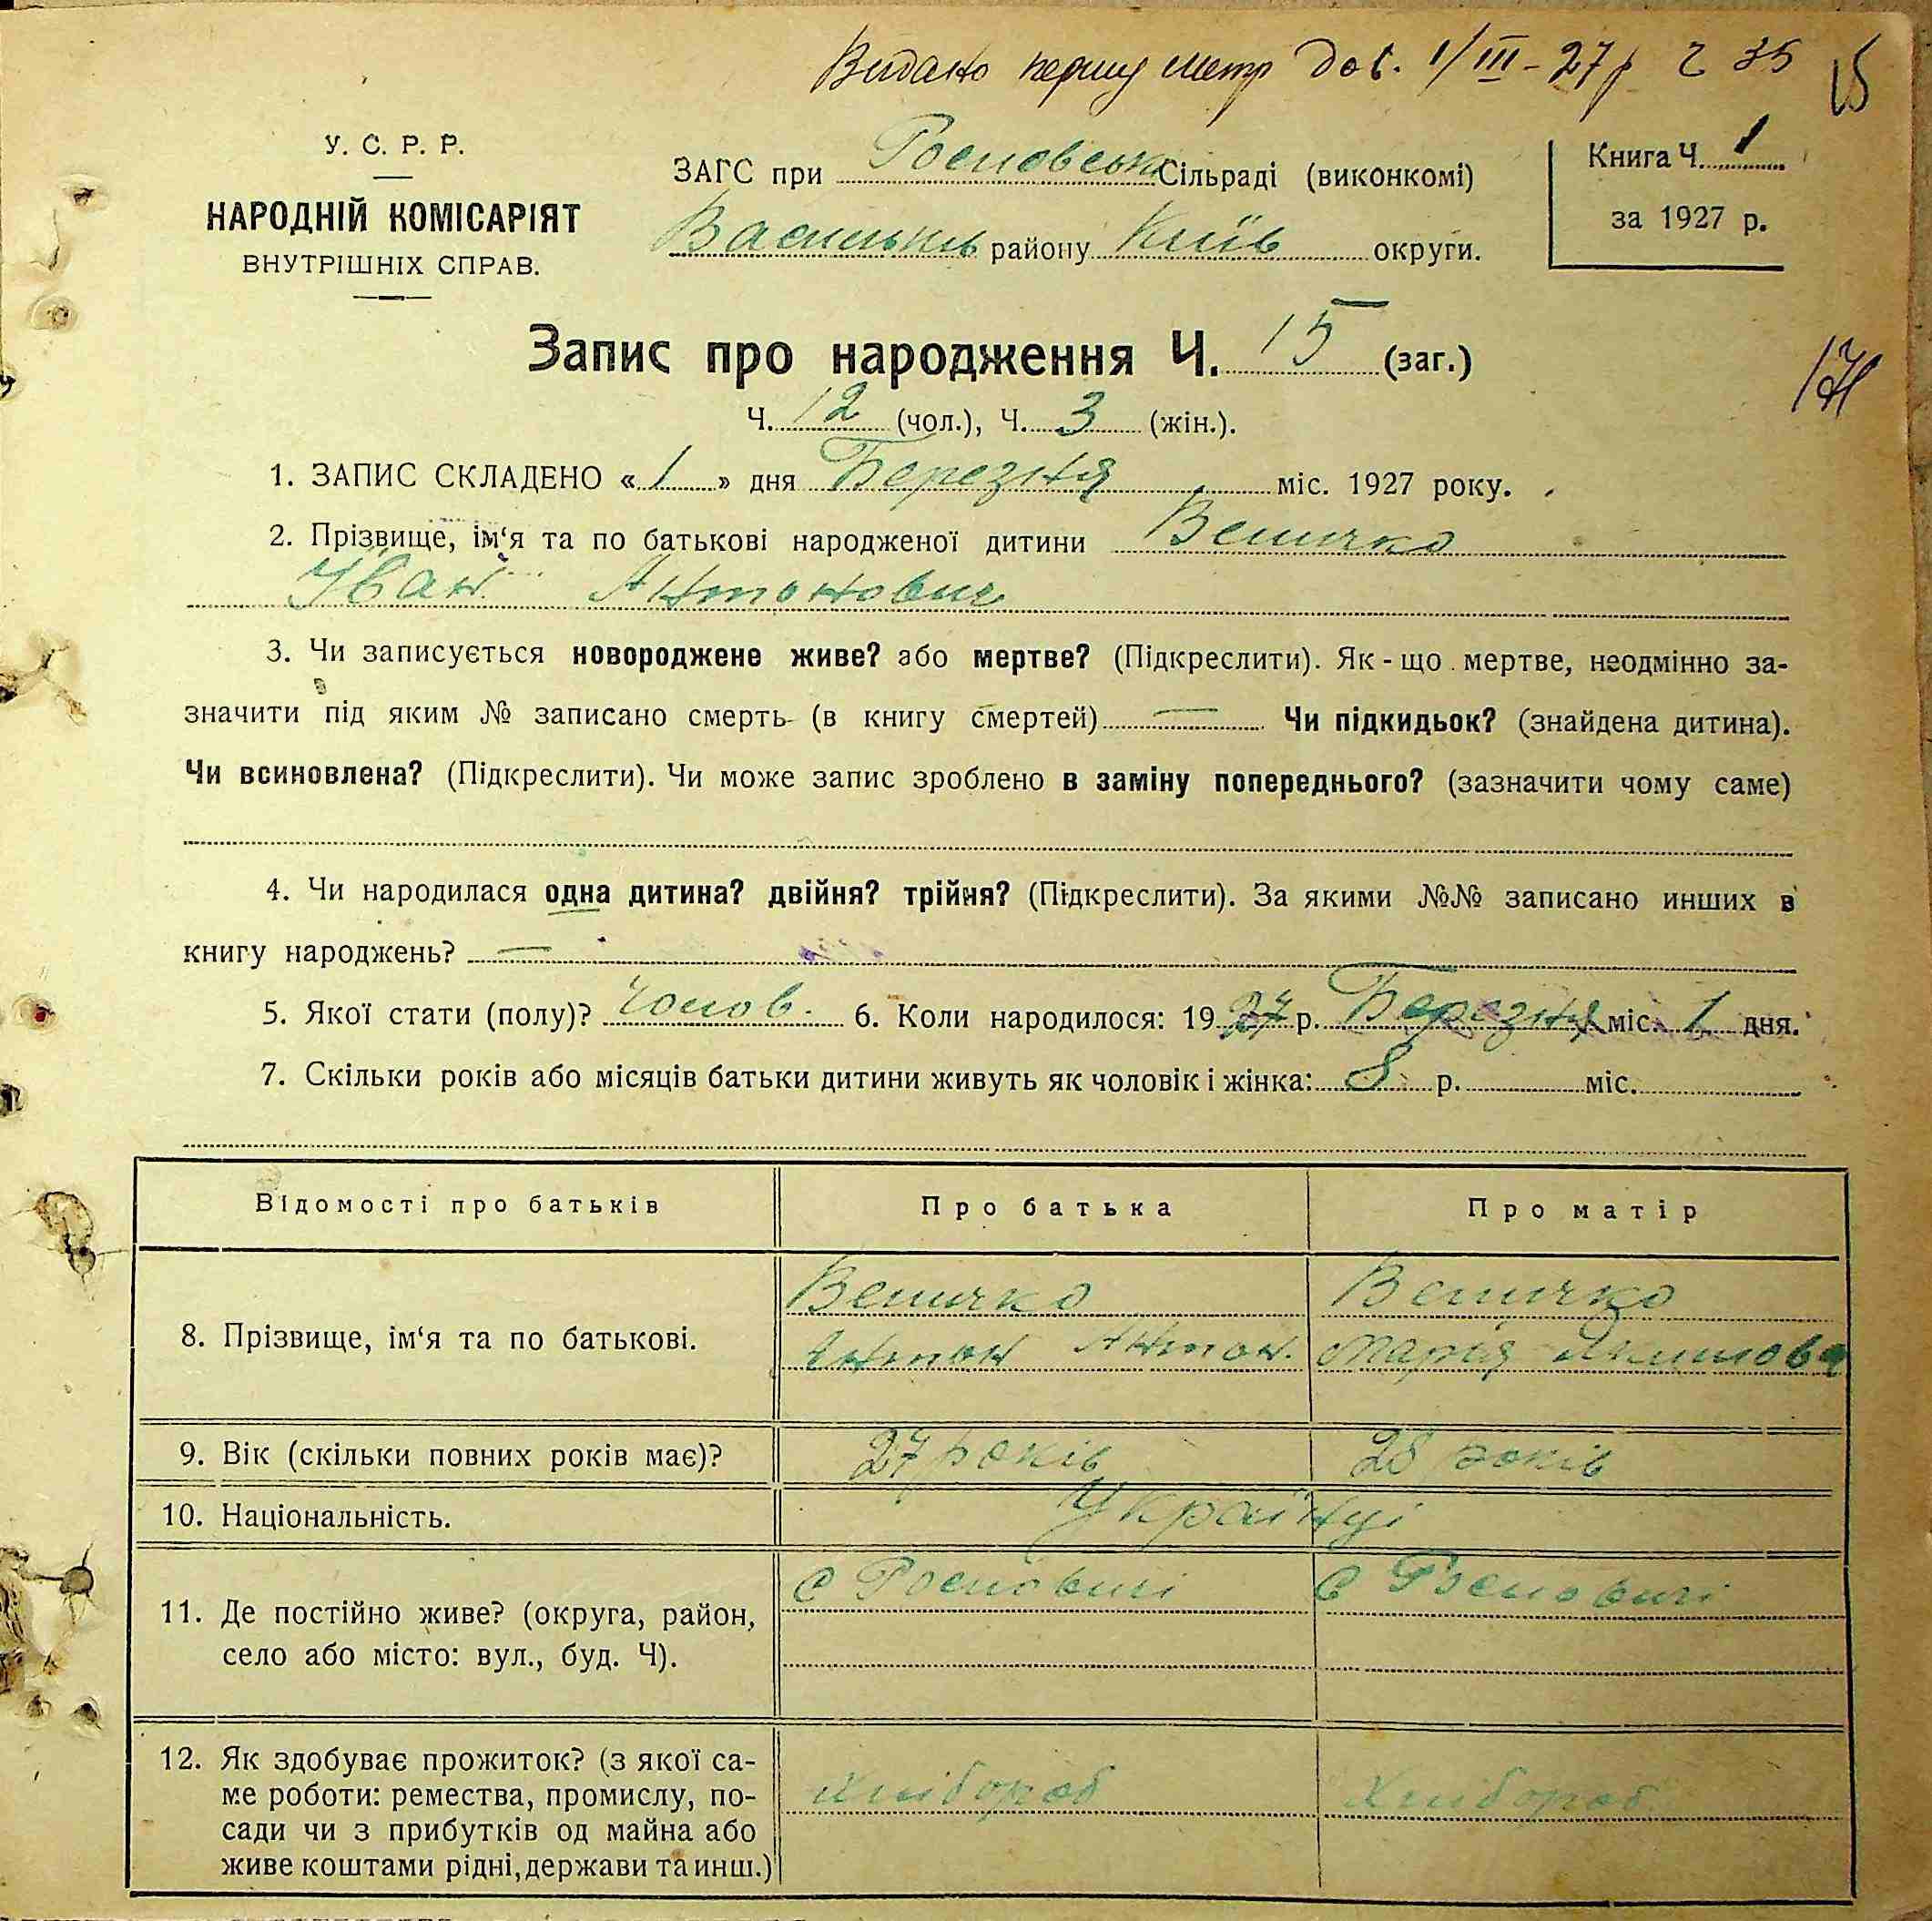 Видано першу метр дов. 1/III-27р Ч 35
15
У. С. Р. Р.
НАРОДНІЙ КОМІСАРІЯТ
ВНУТРІШНІХ СПРАВ.
ЗАГС при Рославськ Сільраді (виконкомі)
Васильків району Київ округи.
Книга Ч. 1
за 1927 р.
Запис про народження Ч. 15 (заг.)
Ч. 12 (чол.), Ч. 3 (жін.).
1. ЗАПИС СКЛАДЕНО « 1 » дня Березня міс. 1927 року.
2. Прізвище, ім‘я та по батькові народженої дитини Величко
Іван Антонович
3. Чи записується новороджене живе? або мертве? (Підкреслити). Як-що мертве, неодмінно за-
значити під яким № записано смерть (в книгу смертей) — Чи підкидьок? (знайдена дитина).
Чи всиновлена? (Підкреслити). Чи може запис зроблено в заміну попереднього? (зазначити чому саме)
4. Чи народилася одна дитина? двійня? трійня? (Підкреслити). За якими №№ записано инших в
книгу народжень? —
5. Якої стати (полу)? Чолов. 6. Коли народилося: 1927 р. Березня міс. 1 дня.
7. Скільки років або місяців батьки дитини живуть як чоловік і жінка: 8 р. міс.
Відомості про батьків Про батька Про матір
8. Прізвище, ім‘я та по батькові.
Величко Величко
Антон Антон. Марія Якимова
9. Вік (скільки повних років має)? 27 років 28 років
10. Національність. Українці
11. Де постійно живе? (округа, район,
село або місто: вул., буд. Ч).
12. Як здобуває прожиток? (з якої са-
ме роботи: ремества, промислу, по-
сади чи з прибутків од майна або
живе коштами рідні, держави та инш.)
Хлібороб Хлібороб